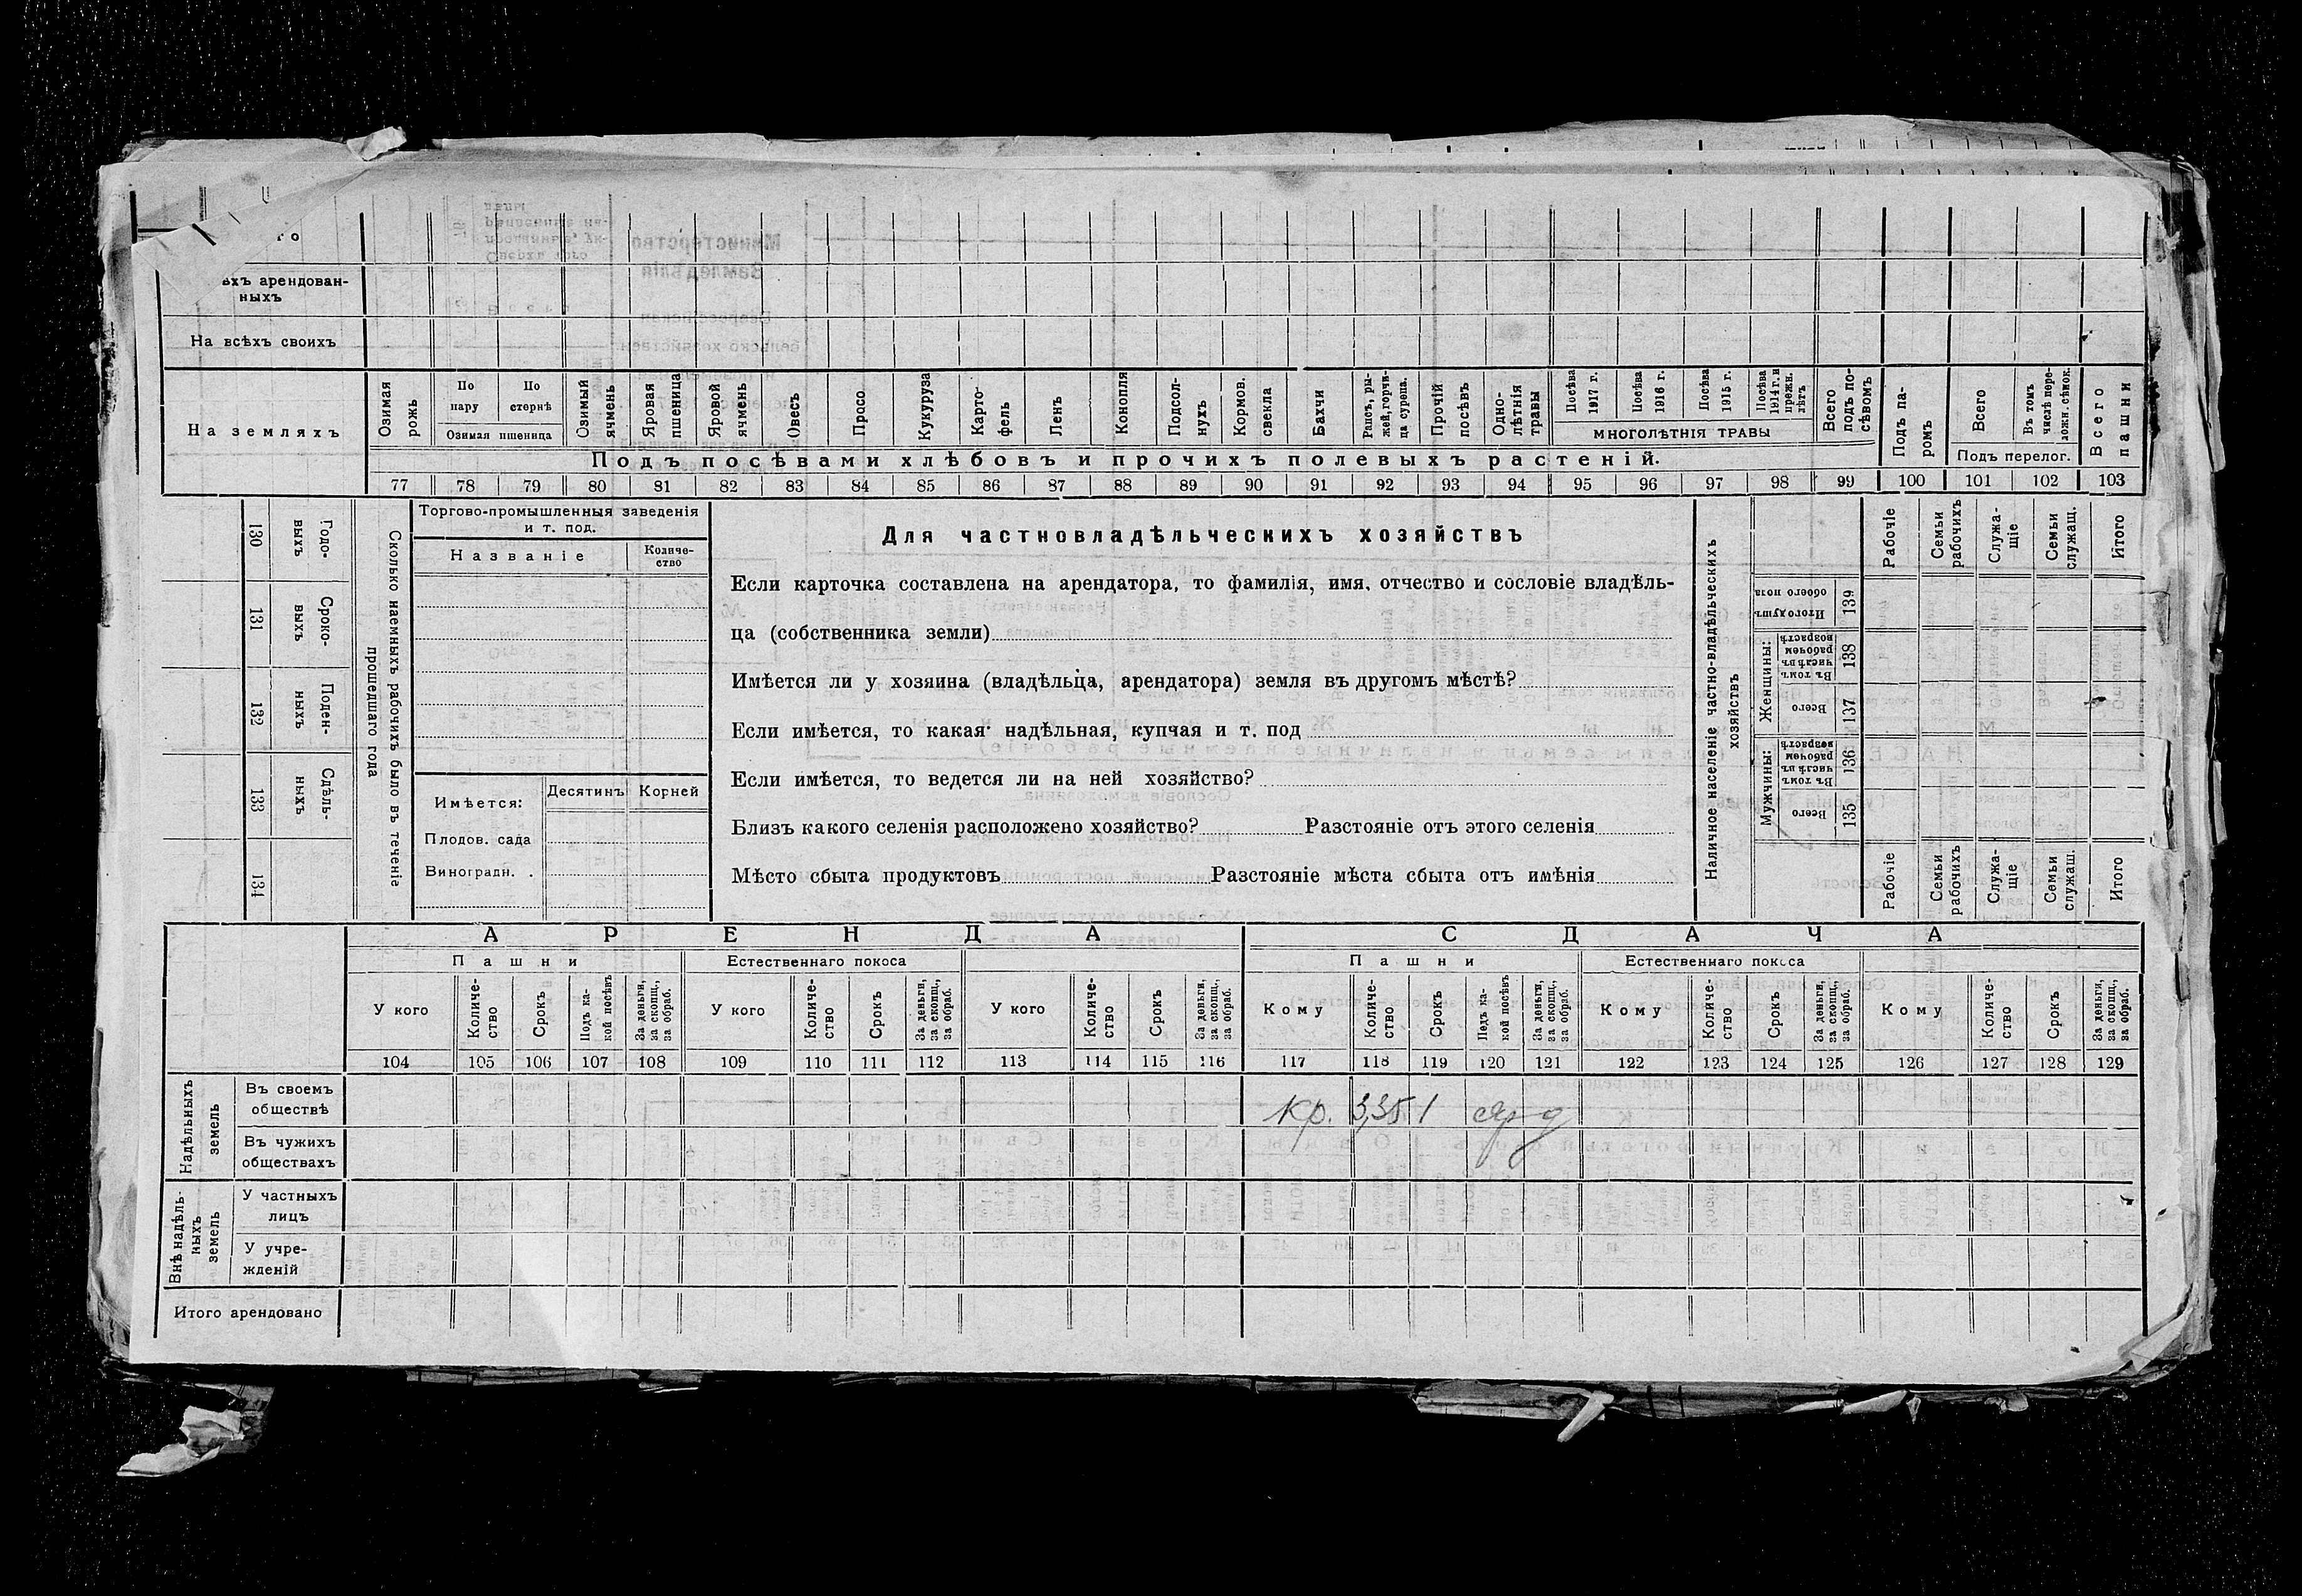 го
ыхъ арендован-
ныхъ
На всѣхъ своихъ
На земляхъ
Озимая рожь
По пару
По стернѣ
Озимая пшеница
Озимый ячмень
Яровая пшеница
Яровой ячмень
Овесъ
Просо
Кукуруза
Карто-
фель
Ленъ
Конопля
Подсол-
нухъ
Кормов. свекла
Бахчи
Рапсъ, ры-
жей, горчи-
ца сурепа.
Прочій посѣвъ
Одно-
лѣтнія травы
Посѣва 1917 г.
Посѣва 1916 г.
Посѣва 1915 г.
Посѣва 1914 г. и прежн. лѣтъ
МНОГОЛѢТНІЯ ТРАВЫ
Всего подъ по-
сѣвомъ
Подъ па-
ромъ
Всего
Въ томъ числѣ пере-
ложн. сѣнок.
Подъ перелог.
Всего пашни
Подъ посѣвами хлѣбовъ и прочихъ полевыхъ растеній.
77 78 79 80 81 82 83 84 85 86 87 88 89 90 91 92 93 94 95 96 97 98 99 100 101 102 103
130 Годо-
выхъ
131 Сроко-
выхъ
132 Поден-
ныхъ
133 Сдѣль-
ныхъ
134
Сколько наемныхъ рабочихъ было въ теченіе
прошедшаго года
Торгово-промышленныя заведенія
и т. под.
Названіе
Количе-
ство
Имѣется:
Десятинъ
Корней
Плодов. сада
Виноградн. .
Для частновладѣльческихъ хозяйствъ
Если карточка составлена на арендатора, то фамилія, имя, отчество и сословіе владѣль-
ца (собственника земли)
Имѣется ли у хозяина (владѣльца, арендатора) земля въ другомъ мѣстѣ?
Если имѣется, то какая надѣльная, купчая и т. под
Если имѣется, то ведется ли на ней хозяйство?
Близъ какого селенія расположено хозяйство? Разстояніе отъ этого селенія
Мѣсто сбыта продуктовъ Разстояніе мѣста сбыта отъ имѣнія
Наличное населеніе частно-владѣльческихъ
хозяйствъ
Рабочіе
Семьи рабочихъ
Служа-
щіе
Семьи служащ.
Итого
Итого душъ обоего пола
139
Женщины:
Въ томъ числѣ въ рабочем возрастѣ
138
Всего
137
Мужчины:
Въ томъ числѣ въ рабочем возрастѣ
136
Всего
135
Рабочіе
Семьи рабочихъ
Служа-
щіе
Семьи служащ.
Итого
АРЕНДА
СДАЧА
Пашни
Естественнаго покоса
Пашни
Естественнаго покоса
У кого
Количе-
ство
Срокъ
Подъ ка-
кой посѣвъ
За деньги, за скопщ., за обраб.
У кого
Количе-
ство
Срокъ
За деньги, за скопщ., за обраб.
У кого
Количе-
ство
Срокъ
За деньги, за скопщ., за обраб.
Кому
Количе-
ство
Срокъ
Подъ ка-
кой посѣвъ
За деньги, за скопщ., за обраб.
Кому
Количе-
ство
Срокъ
За деньги, за скопщ., за обраб.
Кому
Количе-
ство
Срокъ
За деньги, за скопщ., за обраб.
104 105 106 107 108 109 110 111 112 113 114 115 116 117 118 119 120 121 122 123 124 125 126 127 128 129
Надѣльныхъ
земель
Въ своемъ
обществѣ
Кр. 3,35 1 яр д
Въ чужихъ
обществахъ
Внѣ надѣль-
ныхъ
земель
У частныхъ
лицъ
У учре-
жденій
Итого арендовано